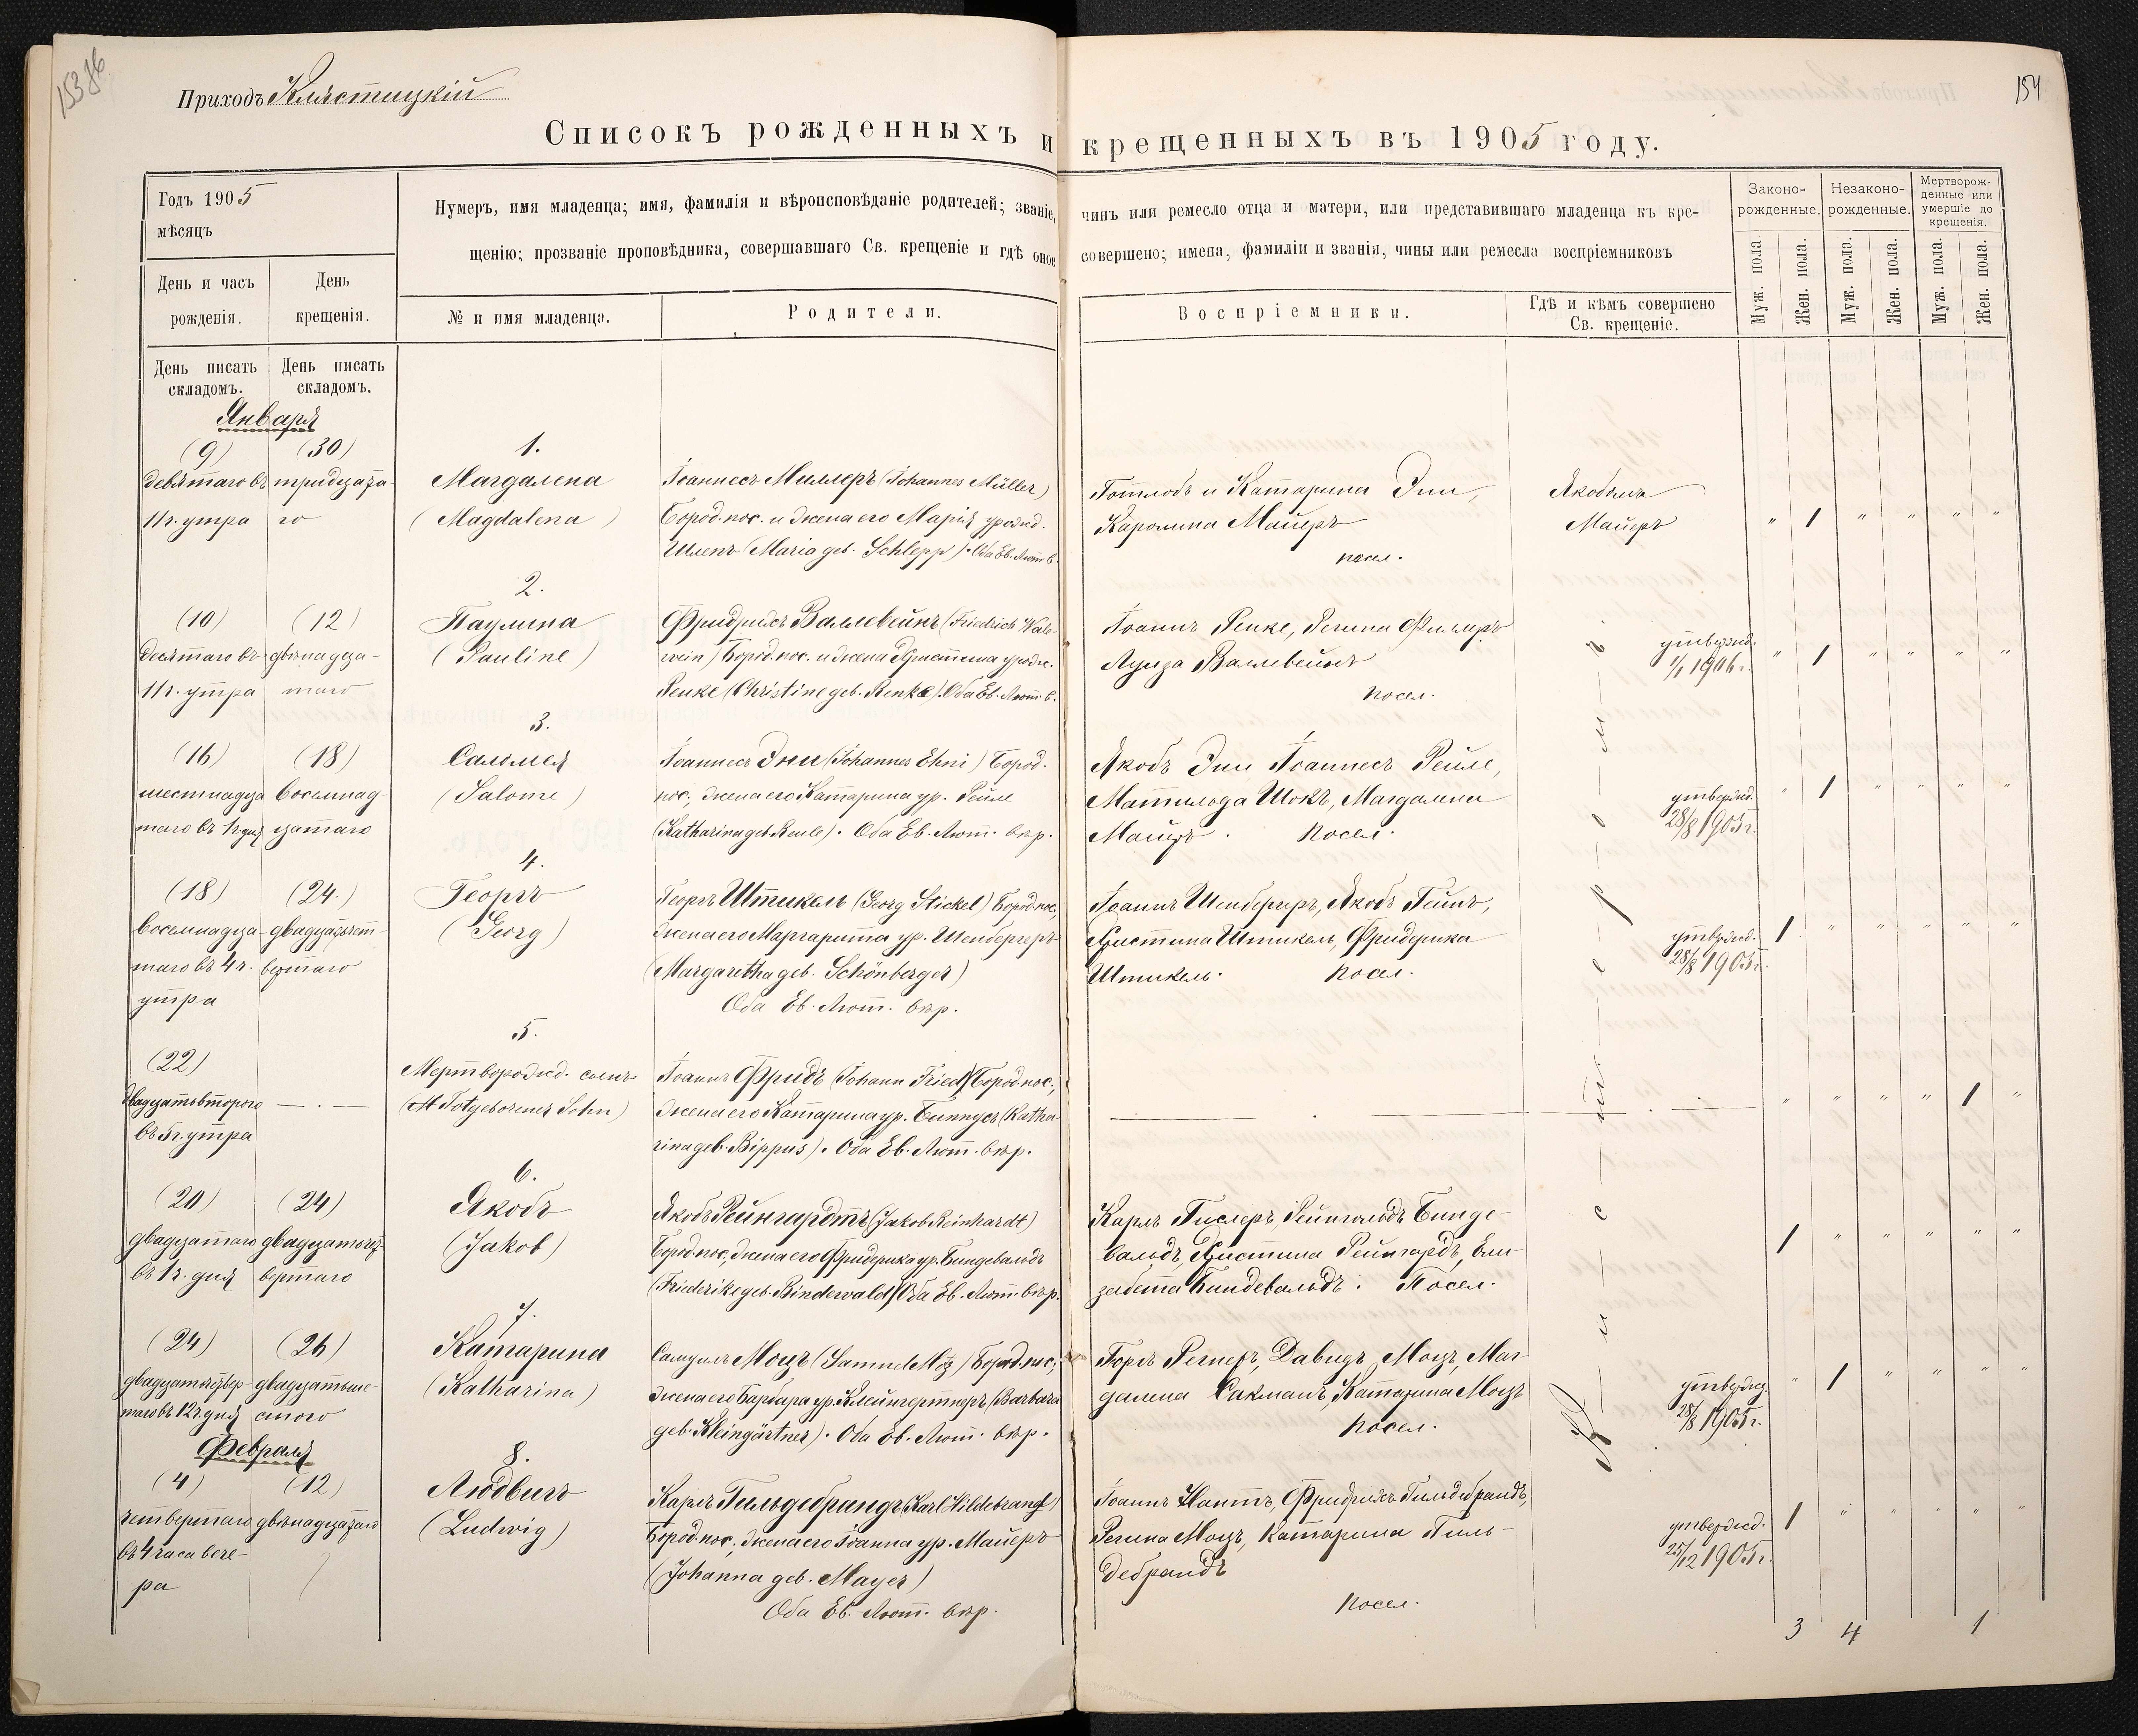 153об
154
Приходъ Клястицкій
Списокъ рожденныхъ и крещенныхъ въ 1905 году.
Годъ 1905
мѣсяцъ
День и часъ рожденія.
День крещенія.
Нумеръ, имя младенца; имя, фамилія и вѣроисповѣданіе родителей; званіе, чинъ или ремесло отца и матери, или представившаго младенца къ кре-
щенію; прозваніе проповѣдника, совершавшаго Св. крещеніе и гдѣ оное совершено; имена, фамиліи и званія, чины или ремесла воспріемниковъ
№ и имя младенца.
Родители.
Воспріемники.
Гдѣ и кѣмъ совершено
Св. крещеніе.
Законо-
рожденные.
Незаконо-
рожденные.
Мертворож-
денные или
умершіе до
крещенія.
Муж. пола.
Жен. пола.
Муж. пола.
Жен. пола.
Муж. пола.
Жен. пола.
День писать
складомъ.
День писать
складомъ.
Января
(9)
девятаго въ
11 ч. утра
(30)
тридцата-
го
1.
Магдалена
(Magdalena)
Іоаннесъ Миллеръ (Johannes Müller)
Бород. пос. и жена его Марія урожд.
Шлепъ (Maria geb. Schlepp). Оба Ев. Лют. в.
Готлобъ и Катарина Эни,
Каролина Майеръ
посел.
Якобомъ
Майеръ
" 1 " " " "
(10)
десятаго въ
11 ч. утра
(12)
двѣнадца-
таго
2.
Паулина
(Pauline)
Фридрихъ Валлевейнъ (Friedrich Wale-
wein) Бород. пос. и жена Христина урож.
Ренке (Christine geb. Renke). Оба Ев. Лют. в.
Іоаннъ Ренке, Регина Филлеръ
Луиза Валлевейнъ
посел.
утвержд.
1/1 1906 г.
" 1 " " " "
(16)
шестнадца
таго въ 1 ч. дня
(18)
восемнад
цатаго
3.
Саломея
(Salome)
Іоаннесъ Эни (Johannes Ehni) Бород.
пос., жена его Катарина ур. Рейле
(Katharina geb. Reule). Оба Ев. Лют. вѣр.
Якобъ Эни Іоаннесъ Рейле,
Матильда Шокъ, Магдалена
Майеръ. посел.
утвержд.
28/8 1905 г.
" 1 " " " "
(18)
восемнадца-
таго въ 4 ч.
утра
(24.)
двадцатьчет-
вертаго
4.
Георгъ
(Georg)
Георгъ Штикель (Georg Stickel) Бород. пос.,
жена его Маргарита ур. Шенбергеръ
(Margaretha geb. Schönberger)
Оба Ев. Лют. вѣр.
Іоаннъ Шенбергеръ, Якобъ Гейнъ,
Христина Штикель, Фридерика
Штикель. посел.
утвержд.
28/8 1905 г.
1 " " " " "
(22)
двадцатьвторого
въ 5 ч. утра
— . —
5.
Мертворожд. сынъ
(Totgeborener Sohn)
Іоаннъ Фридъ (Johann Fried) Бород. пос.,
жена его Катарина ур. Биппусъ (Katha-
rina geb. Bippus). Оба Ев. Лют. вѣр.
" " " " 1 "
(20)
двадцатаго
въ 1 ч. дня
(24)
двадцатьчет-
вертаго
6.
Якобъ
(Jakob)
Якобъ Рейнгардтъ (Jakob Reinhardt)
Бород. пос., жена его Фридерика ур. Биндевальдъ
(Friederike geb. Bindewald) Оба Ев. Лют. вѣр.
Карлъ Гислеръ, Рейнгольдъ Бинде-
вальдъ, Христина Рейнгардъ, Ели-
забета Биндевальдъ. Посел.
1 " " " " "
(24)
двадцатьчетвер-
таго въ 12 ч. дня
(26)
двадцатьше-
стого
7.
Катарина
(Katharina)
Самуилъ Моцъ (Samuel Motz) Бород. пос.,
жена его Барбара ур. Клейнгертнеръ (Barbara
geb. Kleingärtner). Оба Ев. Лют. вѣр.
Георгъ Регнеръ, Давидъ Моцъ, Маг-
далена Сакманъ, Катарина Моцъ
посел.
утвержд.
28/8 1905 г.
" 1 " " " "
Февраля
(4)
четвертаго
въ 4 часа вече-
ра
(12)
двѣнадцатаго
8.
Людвигъ
(Ludwig)
Карлъ Гильдебрандъ (Karl Hildebrand)
Бород. пос., жена его Іоанна ур. Майеръ
(Johanna geb. Mayer)
Оба Ев. Лют. вѣр.
Іоаннъ Нантъ, Фридрихъ Гильдебрандъ,
Регина Моцъ, Катарина Гиль-
дебрандъ
посел.
утвержд.
25/12 1905 г.
1 " " " " "
3 4 1